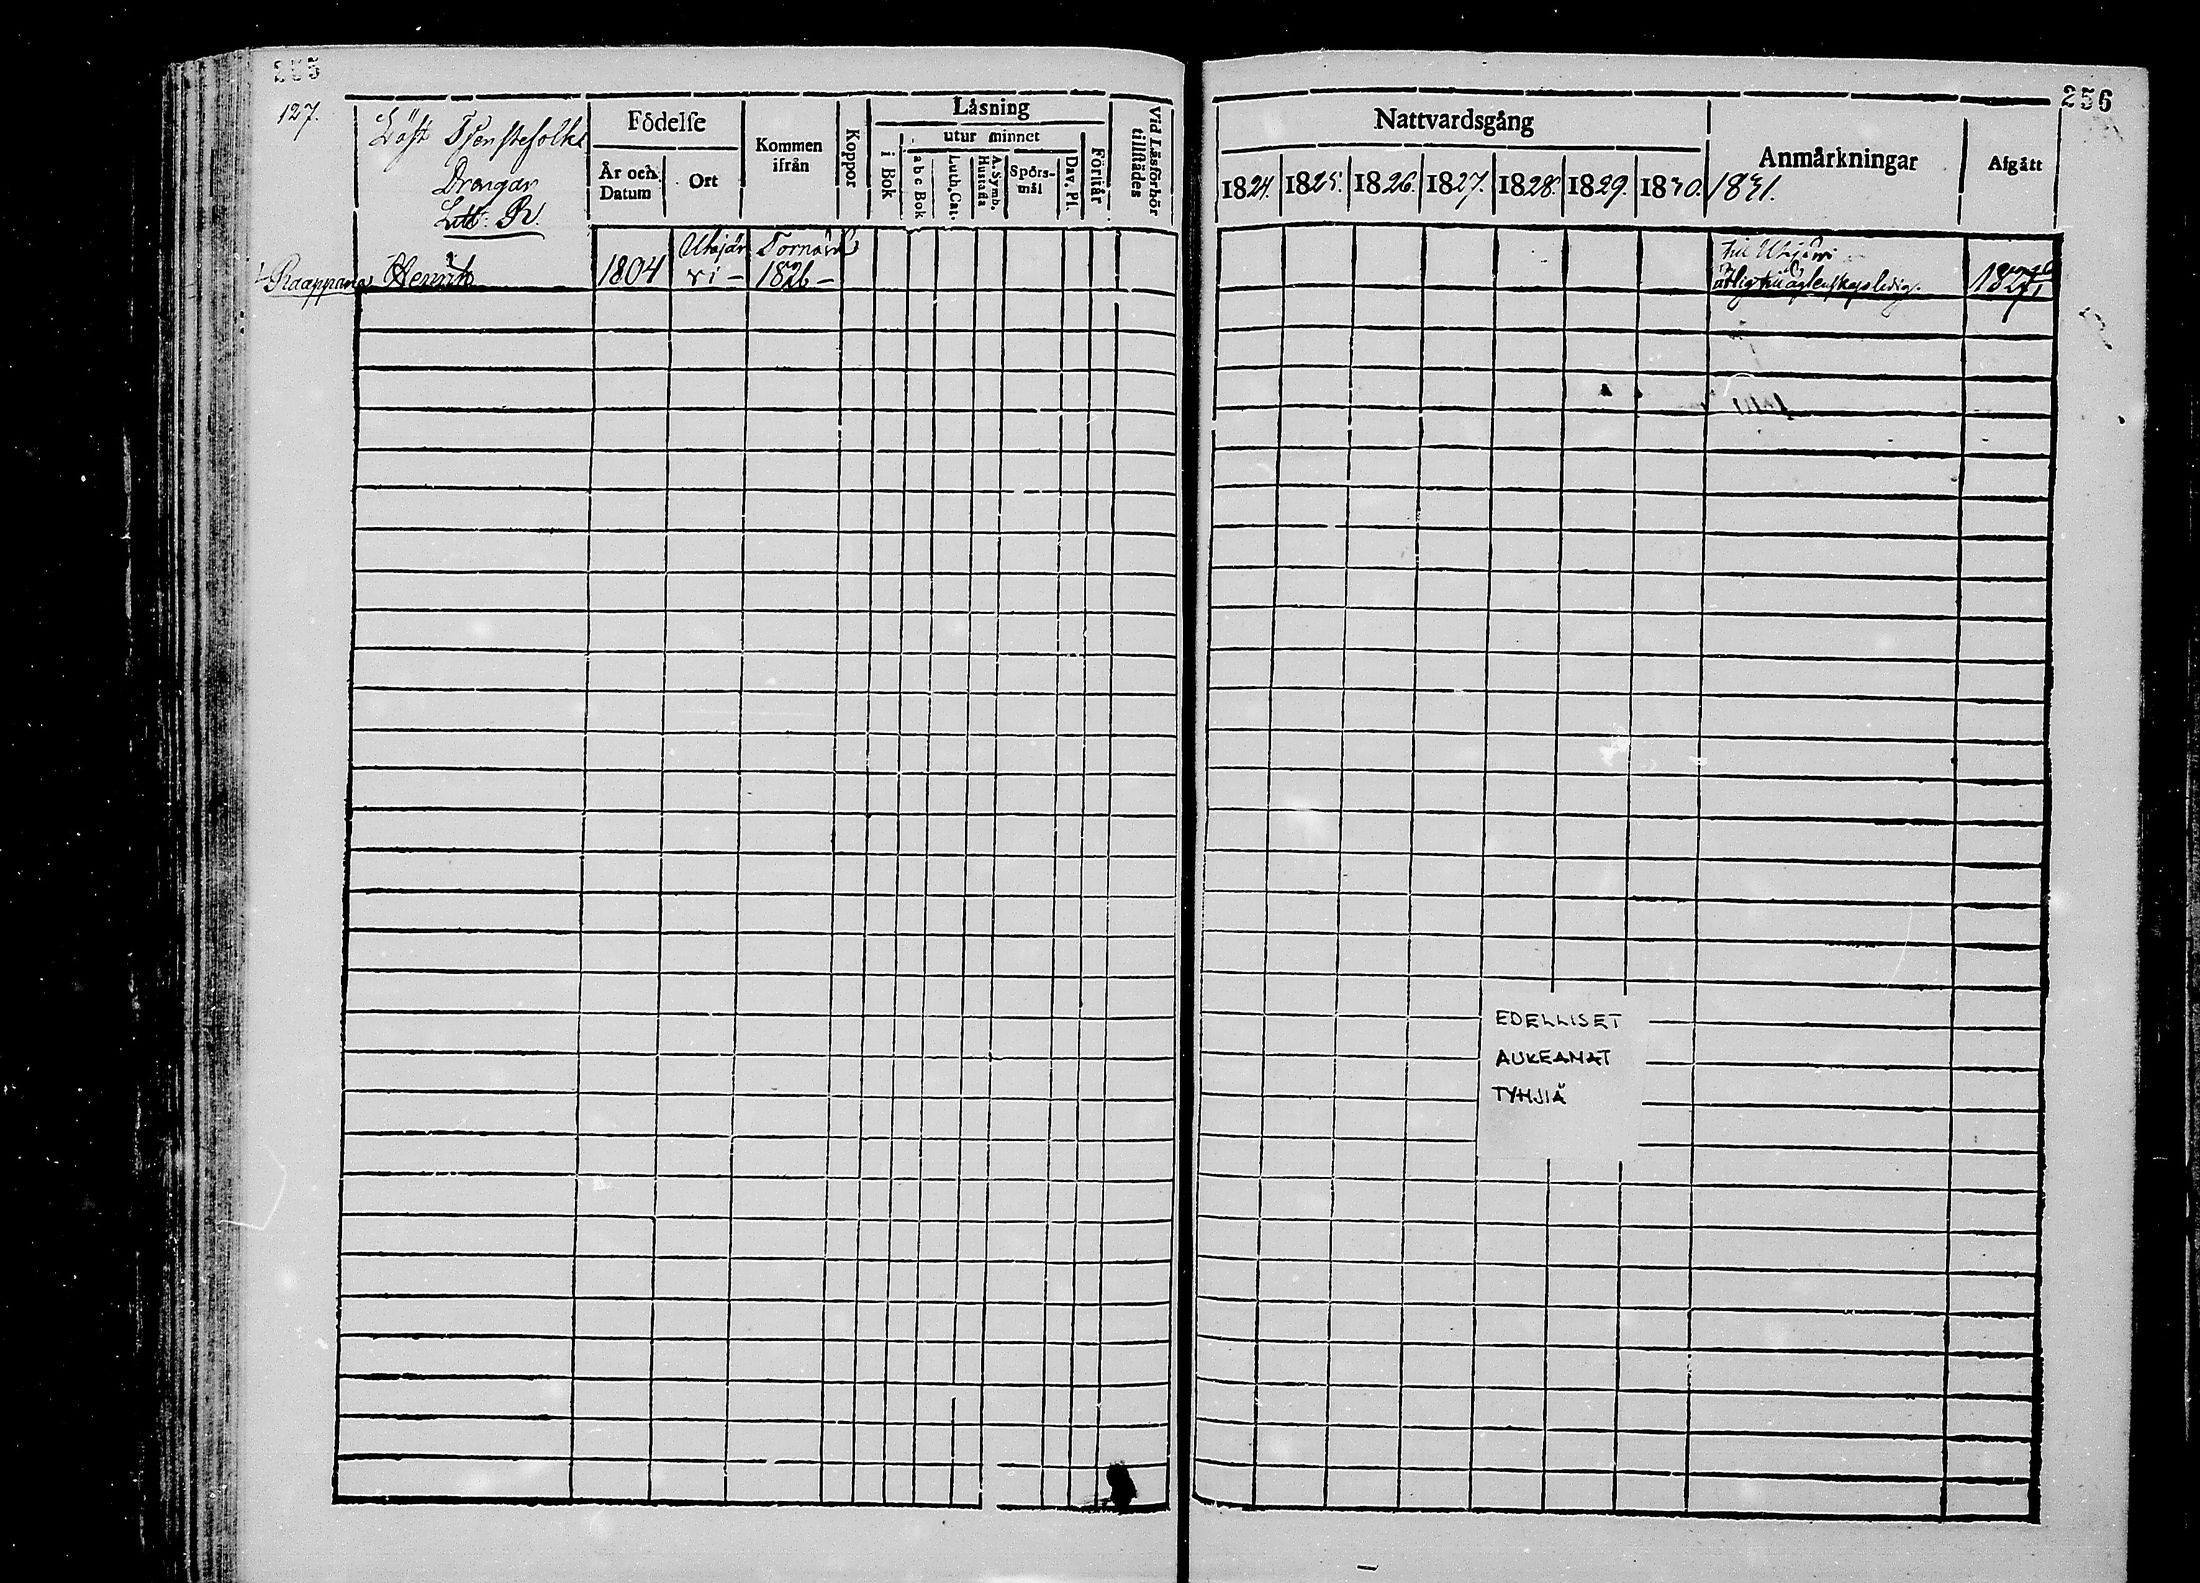 255
127.
Löst Tjenstefolks
Drängar
Litt: R.
Födelse
År och Datum
Ort
Kommen ifrån
Koppor
Läsning
utur minnet
i Bok
a b c Bok
Luth. Cat.
A. Symb. Hustafla
Spörs-mål
Dav. Ps.
Förstår
Vid Läsförhör tillstädes
Raappana Henrik 1804 Utajärvi – Torneå 1826 –
256
Nattvardsgång
1824. 1825. 1826. 1827. 1828. 1829. 1830. 1831.
Anmärkningar
Afgått
till Utajärvi
ärlig till ägtenskap ledig.
EDELLISET
AUKEAMAT
TYHJIÄ